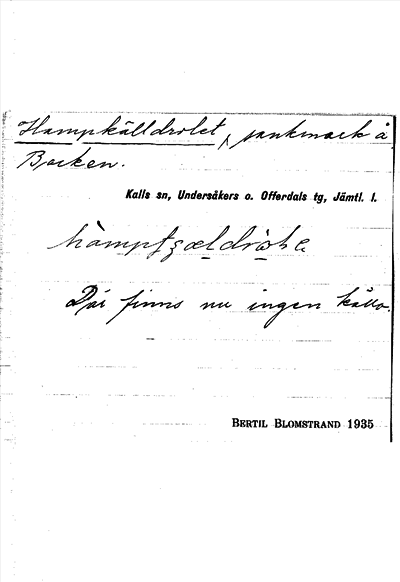 Hampkälldrolet, sankmark å
Backen.
Kalls sn, Undersåkers o. Offerdals tg, Jämtl. l.
Där finns nu ingen källa.
BERTIL BLOMSTRAND 1935